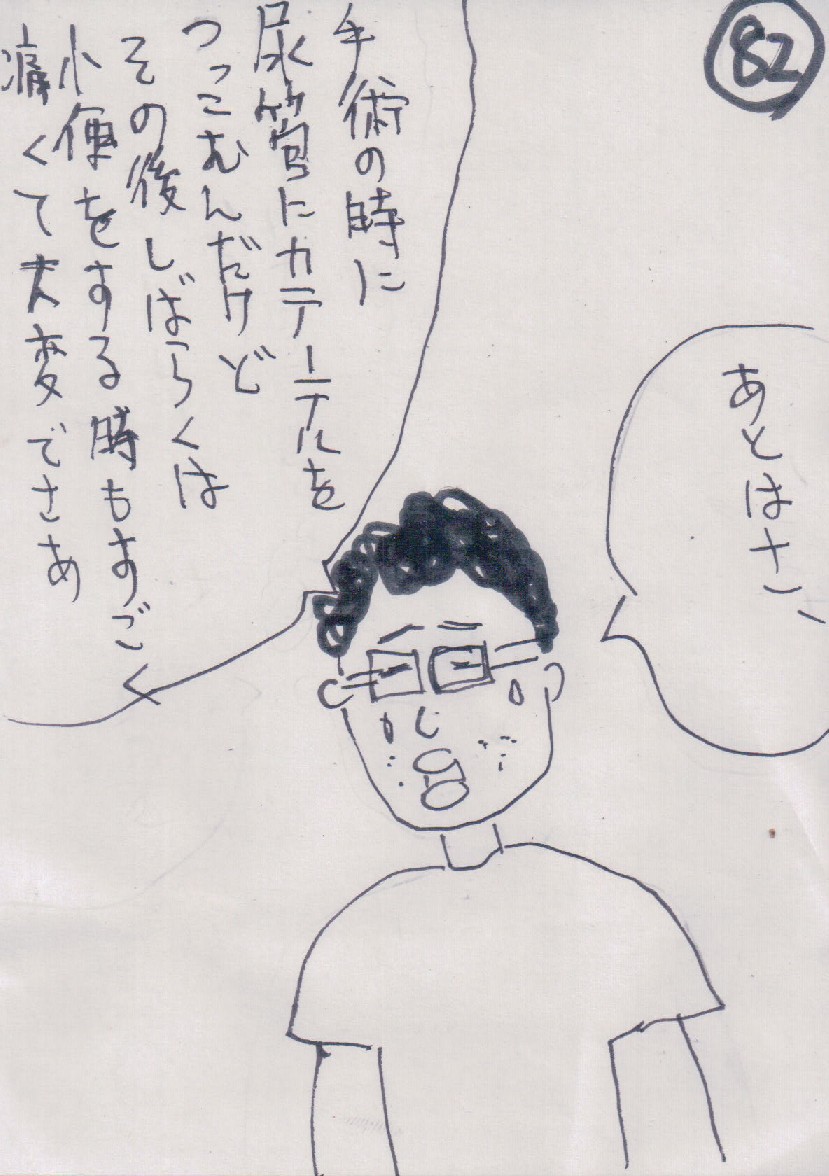 82
あとはサ、
手術の時に
尿管にカテーテルを
つっこむんだけど
その後しばらくは
小便をする時もすごく
痛くて大変でさあ